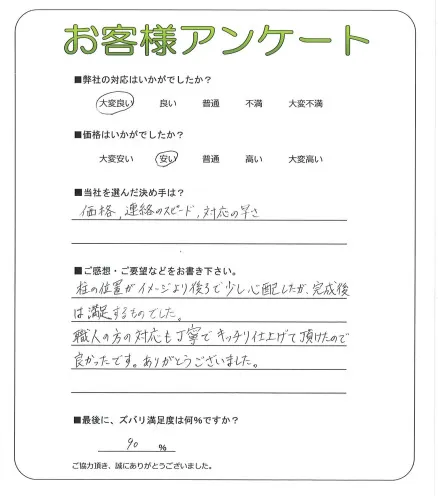 お客様アンケート
■弊社の対応はいかがでしたか？
大変良い 良い 普通 不満 大変不満
■価格はいかがでしたか？
大変安い 安い 普通 高い 大変高い
■当社を選んだ決め手は？
価格、連絡のスピード、対応の早さ
■ご感想・ご要望などをお書き下さい。
柱の位置がイメージより後ろで少し心配したが、完成後
は満足するものでした。
職人の方の対応も丁寧でキッチリ仕上げて頂けたので
良かったです。ありがとうございました。
■最後に、ズバリ満足度は何％ですか？
90 %
ご協力頂き、誠にありがとうございました。